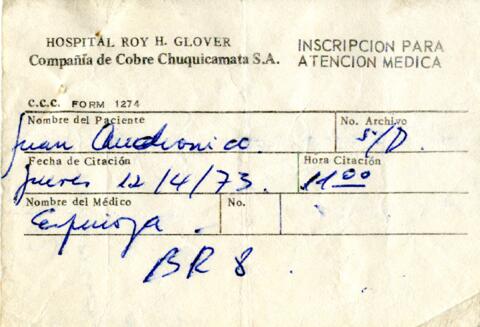 HOSPITAL ROY H. GLOVER
Compañía de Cobre Chuquicamata S.A.
INSCRIPCION PARA
ATENCION MEDICA
C.C.C. FORM 1274
Nombre del Paciente
No. Archivo
Juan Andronico.
S/D.
Fecha de Citación
Hora Citación
Jueves 12/4/73.
11 00
Nombre del Médico
No.
Espinoza.
BR 8.